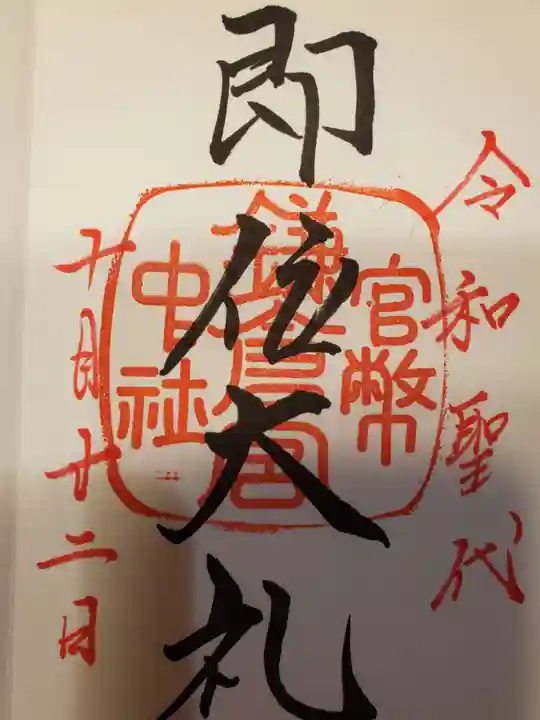 令和聖代
即位大礼
官幣
鎌倉宮
中社
十月廿二日